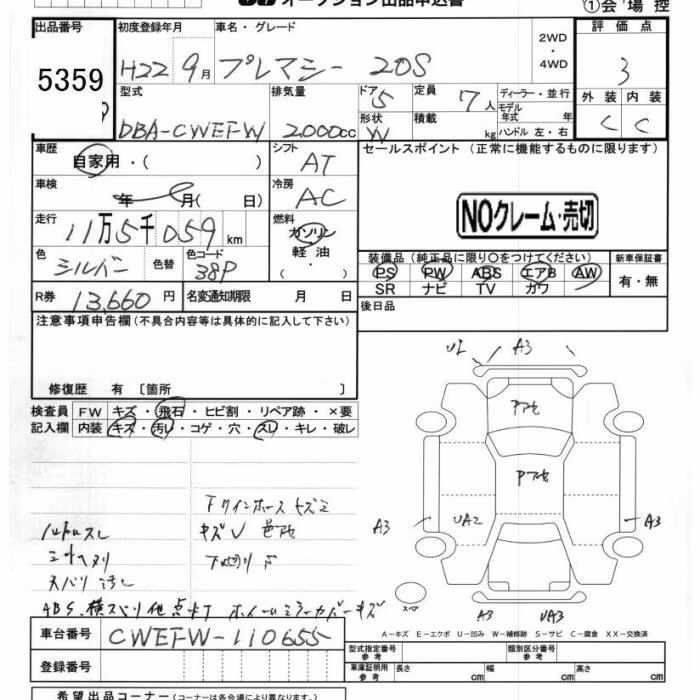 オークション出品申込書
①会場控
出品番号
5359
初度登録年月
H22 9月
車名・グレード
プレマシー 20S
2WD
・
4WD
評価点
3
型式
DBA-CWEFW
排気量
2000cc
ドア
5
形状
W
定員
7人
積載
kg
ディーラー・並行
モデル
年式 年
ハンドル 左・右
外装 内装
C C
車歴
自家用・( )
シフト
AT
セールスポイント (正常に機能するものに限ります)
車検
年 月( 日)
冷房
AC
NOクレーム・売切
走行
11万5千059km
燃料
ガソリン
軽油
・( )
色
シルバー
色替
色コード
38P
装備品 (純正品に限り○をつけてください)
PS PW ABS エアB AW
SR ナビ TV カワ
新車保証書
有・無
R券
13,660円
名変通知期限 月 日
後日品
注意事項申告欄 (不具合内容等は具体的に記入して下さい)
修復歴 有 [箇所 ]
検査員
記入欄
FW キズ・飛石・ヒビ割・リペア跡・×要
内装 キズ・汚レ・コゲ・穴・スレ・キレ・破レ
U1 A3
Pアセ
Pアセ
A3
UA2
A3
A3
UA3
スペア
下サイ
キズ
ハンドルスレ
シートヘタリ
ABS、横スベリ他点灯 ホイールミラーカバーキズ
A-キズ E-エクボ U-凹み W-補修跡 S-サビ C-腐食 XX-交換済
車台番号
CWEFW-110655
登録番号
型式指定番号
参考
類別区分番号
参考
車庫証明用
参考
長さ cm 幅 cm 高さ cm
希望出品コーナー (コーナーは各会場により異なります)